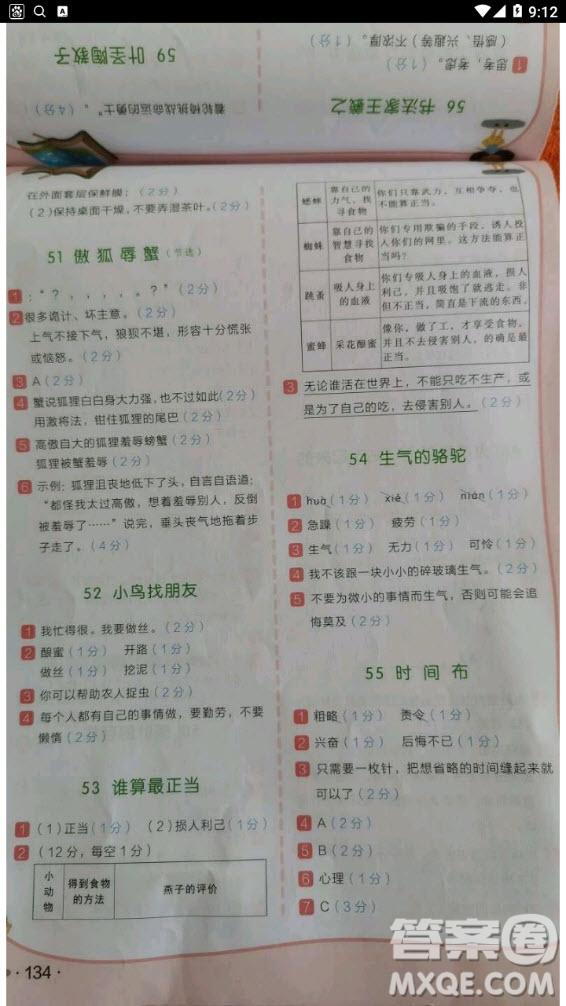 9:12
59 叶圣陶教子
（感悟、兴趣等）不浓厚。（1分）
1 思考，考虑。（1分）
56 书法家王羲之
着轮椅挑战命运的勇士”。（4分）
在外面套层保鲜膜；（2分）
（2）保持桌面干燥，不要弄湿茶叶。（2分）
51 傲狐辱蟹（节选）
1 ：“？，，，，。？”（2分）
2 很多诡计、坏主意。（2分）
上气不接下气，狼狈不堪，形容十分慌张
或恼怒。（2分）
3 A（2分）
4 蟹说狐狸白白身大力强，也不过如此（2分）
用激将法，钳住狐狸的尾巴（2分）
5 高傲自大的狐狸羞辱螃蟹（2分）
狐狸被蟹羞辱（2分）
6 示例：狐狸沮丧地低下了头，自言自语道：
“都怪我太过高傲，想着羞辱别人，反倒
被羞辱了……”说完，垂头丧气地拖着步
子走了。（4分）
52 小鸟找朋友
1 我忙得很。我要做丝。（2分）
2 酿蜜（1分） 开路（1分）
做丝（1分） 挖泥（1分）
3 你可以帮助农人捉虫（2分）
4 每个人都有自己的事情做，要勤劳，不要
懒惰（2分）
53 谁算最正当
1 （1）正当（1分） （2）损人利己（1分）
2 （12分，每空1分）
小动物 得到食物的方法 燕子的评价
蟋蟀 靠自己的力气，找寻食物 你们只靠武力，互相争夺，也不能算正当。
蜘蛛 靠自己的智慧寻找食物 你们专用欺骗的手段，诱人投入你们的网里。这方法能算正当吗？
跳蚤 吸人身上的血液 你们专吸人身上的血液，损人利己，并且吸饱了就逃走。非但不正当，简直是下流的东西。
蜜蜂 采花酿蜜 像你，做了工，才享受食物，并且不去侵害别人，的确是最正当。
3 无论谁活在世界上，不能只吃不生产，或
是为了自己的吃，去侵害别人。（2分）
54 生气的骆驼
1 huá（1分） xiě（1分） niǎn（1分）
2 急躁（1分） 疲劳（1分）
3 生气（1分） 无力（1分） 可怜（1分）
4 我不该跟一块小小的碎玻璃生气。（2分）
5 不要为微小的事情而生气，否则可能会追
悔莫及（2分）
55 时间布
1 粗略（1分） 责令（1分）
2 兴奋（1分） 后悔不已（1分）
3 只需要一枚针，把想省略的时间缝起来就
可以了（2分）
4 A（2分）
5 B（2分）
6 心理（1分）
7 C（3分）
·134·
答案圈
MXQE.COM